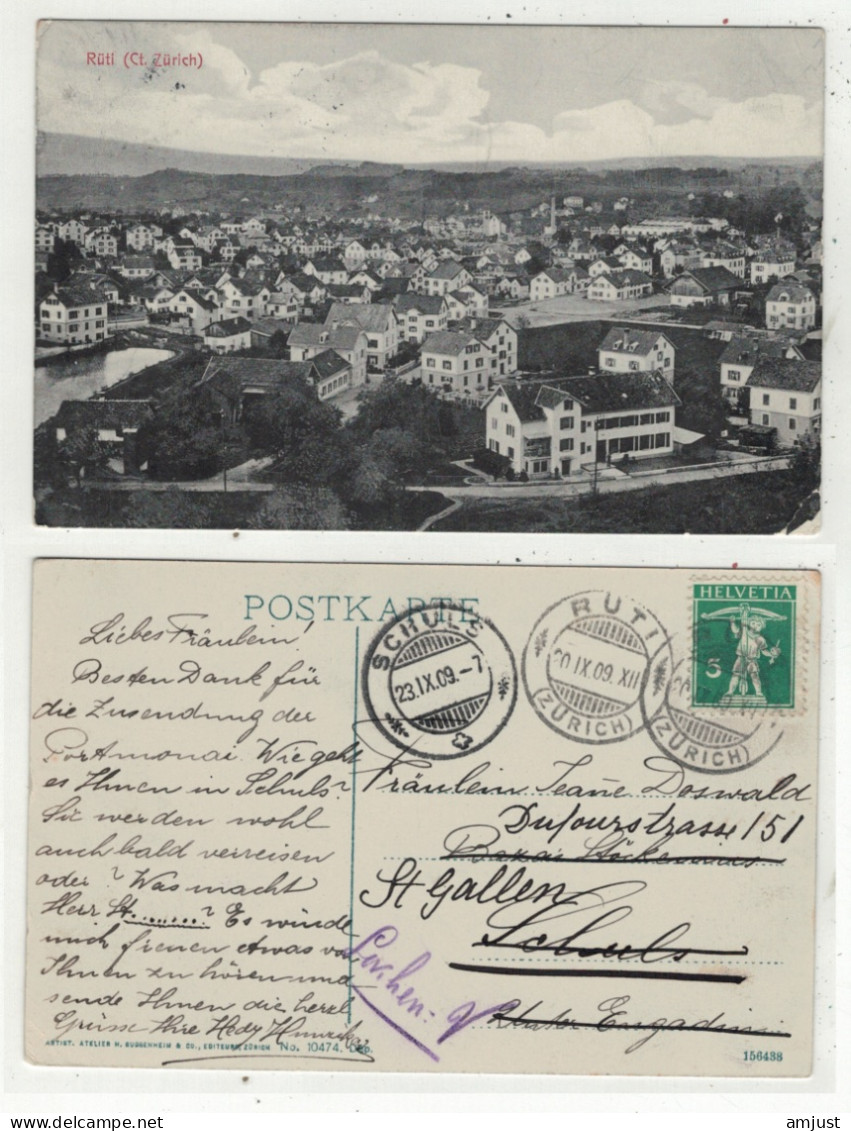 Rüti (Ct. Zürich)
POSTKARTE
Liebes Fräulein!
Besten Dank für
die Zusendung der
Portmonai. Wie geht
es Ihnen in Schuls?
Sie werden wohl
auch bald verreisen
oder? Was macht
Herr St.........? Es würde
mich freuen etwas von
Ihnen zu hören und
sende Ihnen die herzl
Grüsse Ihre Hedy
ARTIST. ATELIER H. GUGGENHEIM & CO., EDITEURS, ZÜRICH No. 10474. Dep.
SCHULS
23.IX.09.-7
RUTI
20.IX.09.XII
(ZÜRICH)
(ZÜRICH)
HELVETIA
5
Fräulein Jeanne Doswald
Dufourstrasse 151
Bazar
St Gallen
Schuls
Lachen-V
Unter Engadin
156438
delcampe.net
amjust